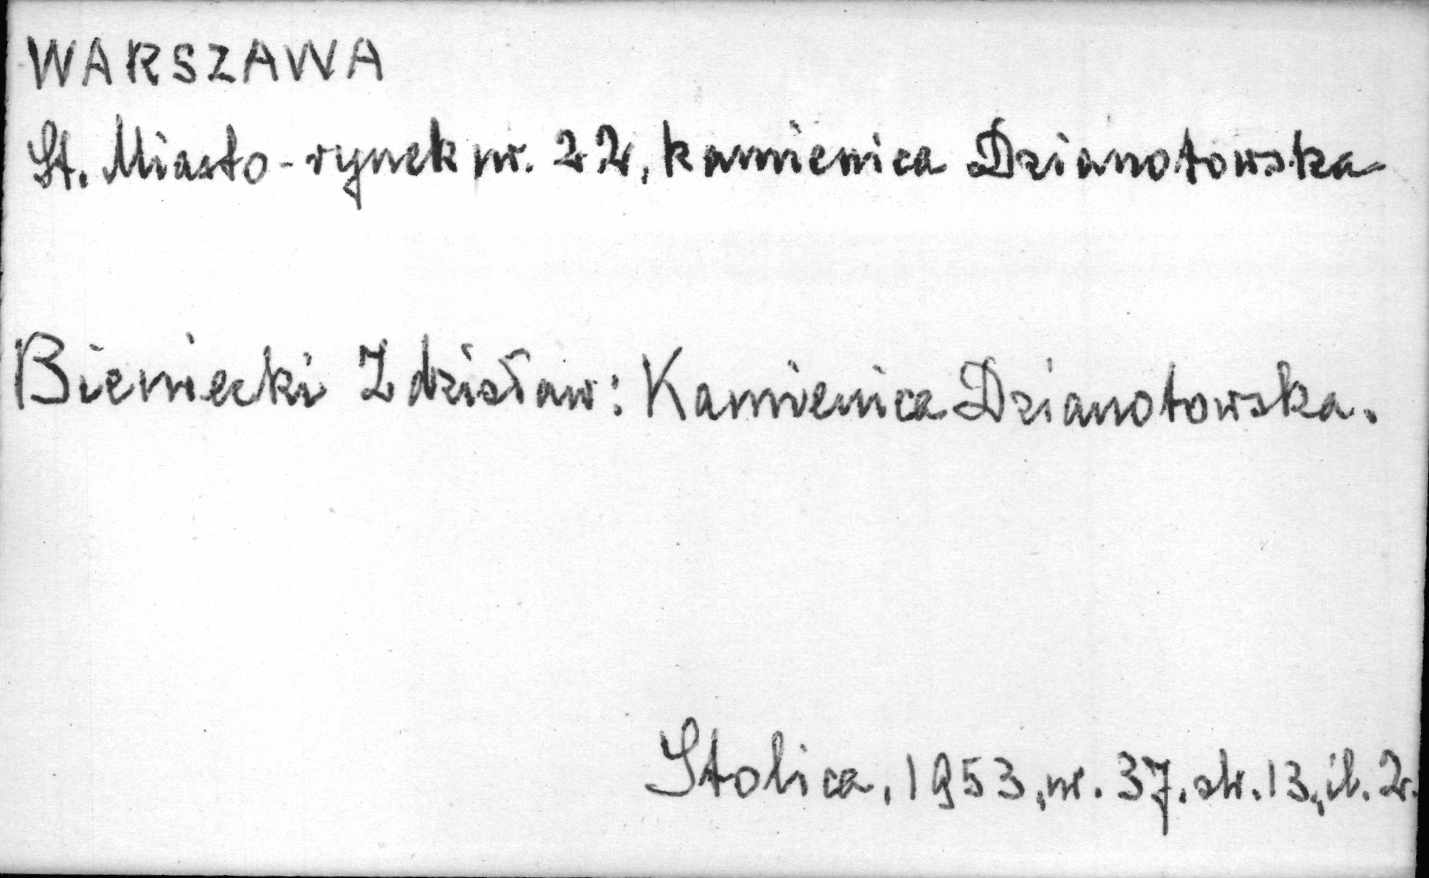 WARSZAWA
St. Miasto - rynek nr. 22, kamienica Dzianotowska
Bieniecki Zdzisław: Kamienica Dzianotowska.
Stolica, 1953, nr. 37. str. 13, il. 2.